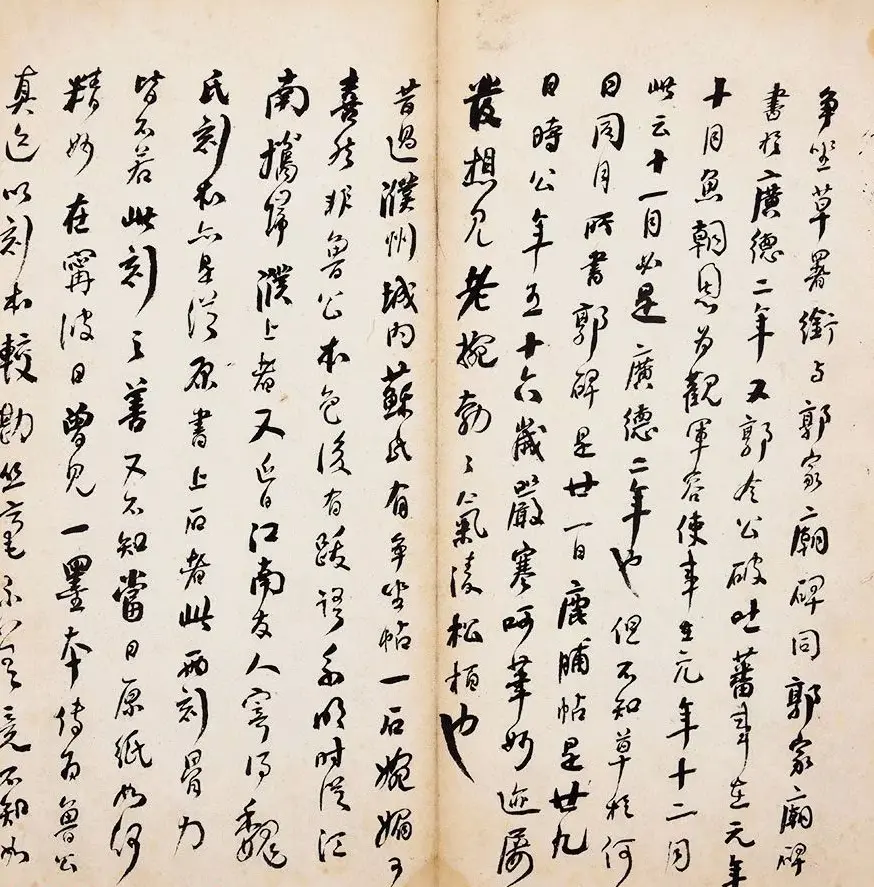 争坐草署銜与郭家廟碑同郭家廟碑
書於廣德二年又郭令公破吐蕃事在元年
十月魚朝恩为觀軍容使事在元年十二月
此云十一月必是廣德二年也但不知草於何
日同月所書郭碑是廿一日鹿脯帖是廿九
日時公年五十六歲嚴寒呵筆妙迹屢
發想見老腕勃〻氣凌松栢也
昔過濮州城内蘇氏有争坐帖一石婉媚可
喜然非魯公本色後有跋語系明时從江
南攜歸濮上者又近日江南友人寄得魏
氏刻本亦是從原書上石者此兩刻骨力
皆不若此刻之善又不知當日原紙如何
精妙在寧波日曾見一墨本傳为魯公
真迹以刻本較勘絲毫不竟不知如